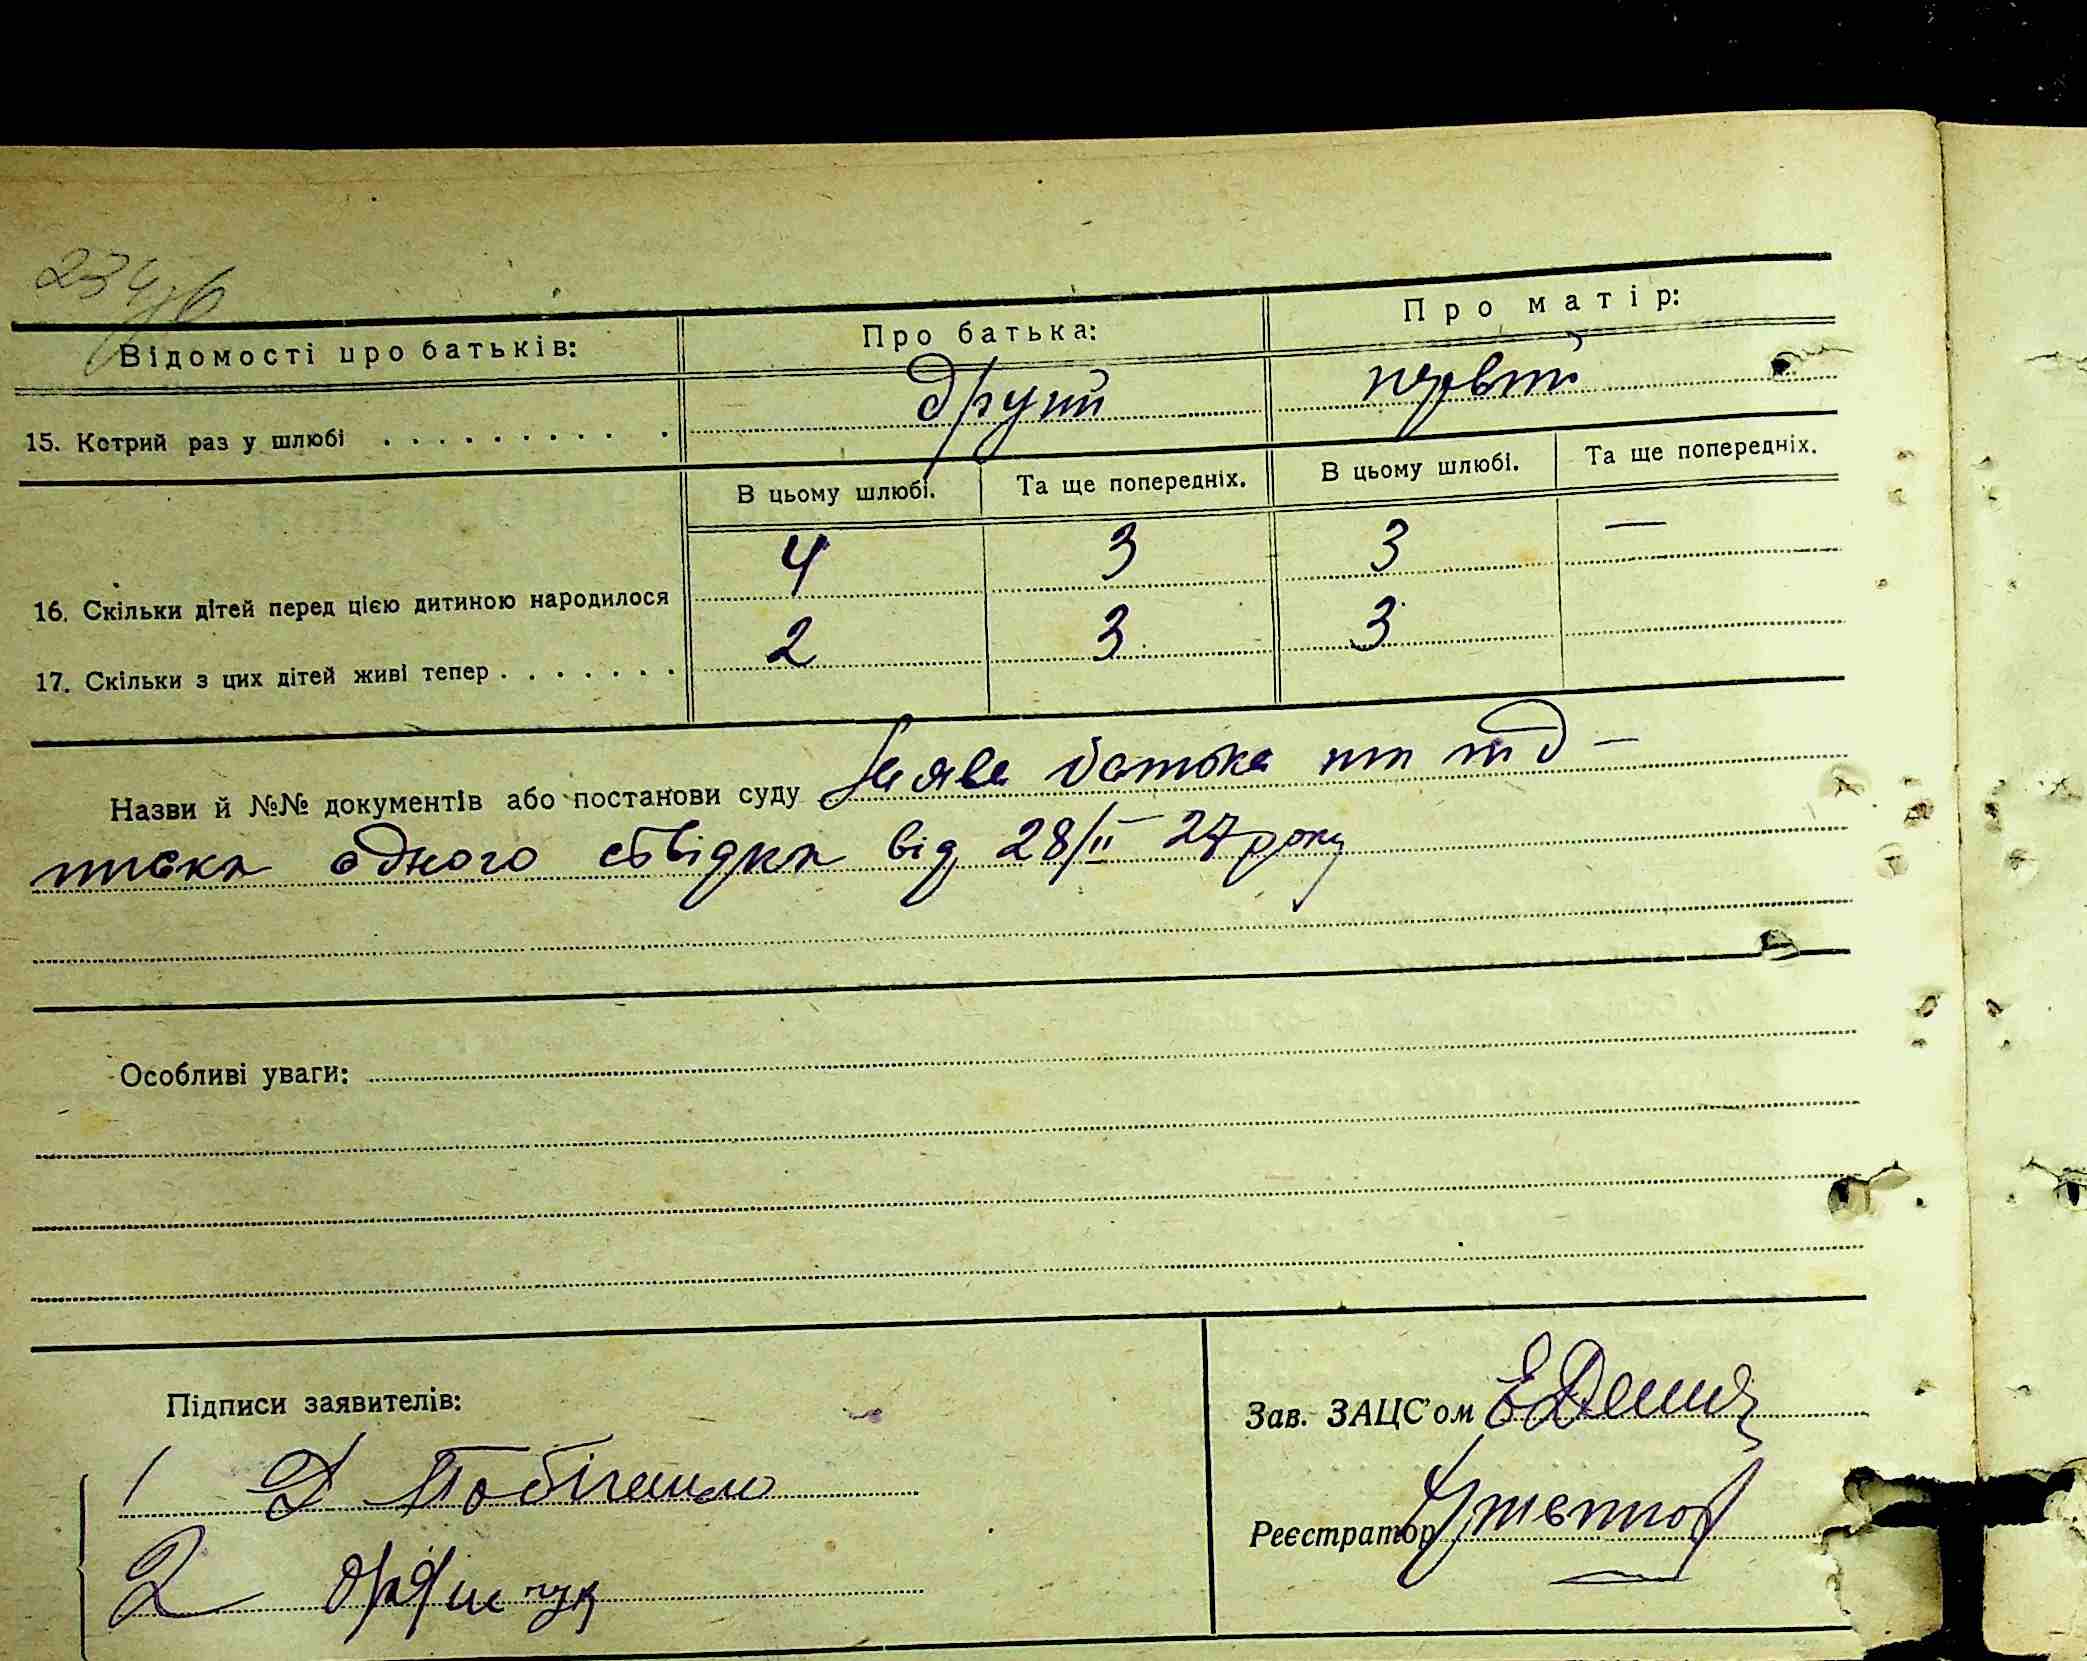 234зв
Відомості про батьків:
Про батька:
Про матір:
15. Котрий раз у шлюбі
другий
первий
В цьому шлюбі.
Та ще попередніх.
В цьому шлюбі.
Та ще попередніх.
16. Скільки дітей перед цією дитиною народилося
4
3
3
—
17. Скільки з цих дітей живі тепер
2
3
3
Назви й №№ документів або постанови суду Заява батька та під-
писка одного свідка від 28/II 27 року
Особливі уваги:
Підписи заявителів:
1 Д Побігайло
2
Зав. ЗАЦС'ом
Реєстратор